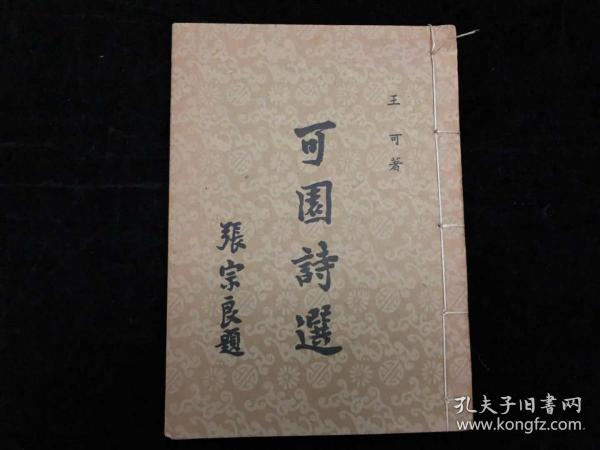 王可著
可園詩選
張宗良題
孔夫子旧書网
www.kongfz.com